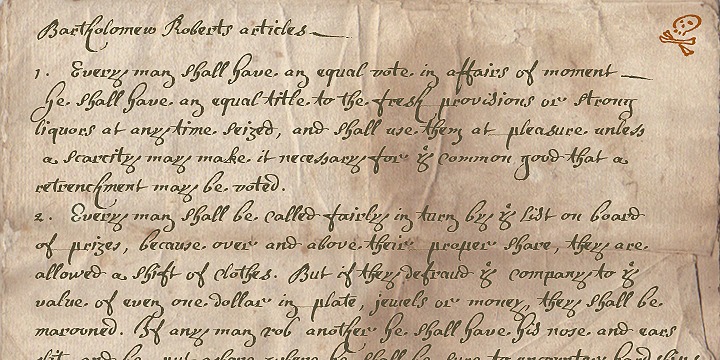 Bartholomew Roberts articles
1. Every man shall have an equal vote in affairs of moment
he shall have an equal title to the fresh provisions or strong
liquors at any time seized, and shall use them at pleasure unless
a scarcity may make it necessary for yͤ common good that a
retrenchment may be voted.
2. Every man shall be called fairly in turn by yͤ List on board
of prizes, because over and above their proper share, they are
allowed a shift of clothes. But if they defraud yͤ company to yͤ
value of even one dollar in plate, jewels or money, they shall be
marooned. If any man rob another he shall have his nose and ears
slit, and be put ashore where he shall be sure to encounter hardships